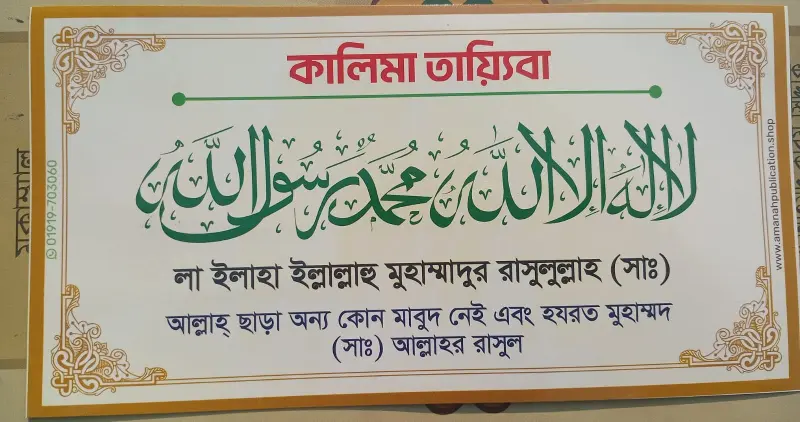 কালিমা তায়্যিবা
لا اله الا الله محمد رسول الله
লা ইলাহা ইল্লাল্লাহু মুহাম্মাদুর রাসুলুল্লাহ (সাঃ)
আল্লাহ্ ছাড়া অন্য কোন মাবুদ নেই এবং হযরত মুহাম্মদ
(সাঃ) আল্লাহর রাসুল
01919-703060
www.amanahpublication.shop